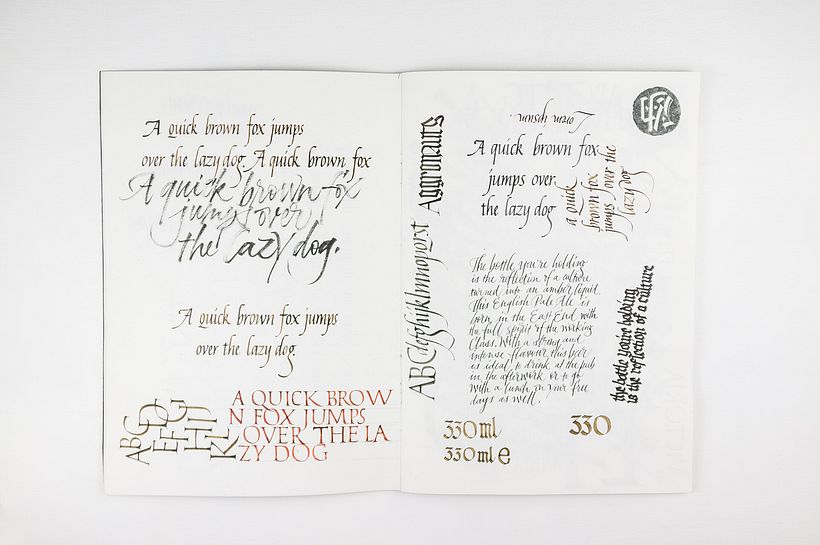 A quick brown fox jumps
over the lazy dog. A quick brown fox
A quick brown fox
jumps over
the lazy dog.
A quick brown fox jumps
over the lazy dog.
ABCDEFGHIJKL
A QUICK BROW
N FOX JUMPS
OVER THE LA
ZY DOG
Lorem ipsum.
A quick brown fox
jumps over
the lazy dog
a quick
brown fox
jumps over the
lazy dog
ABCdefghijklmnopqrst
The bottle you're holding
is the reflection of a culture
turned into an amber liquid.
This English Pale Ale is
born in the East End with
the full spirit of the working
Class. With a strong and
intense flavour this beer
is ideal to drink at the pub
in the afterwork or to go
with a lunch in your free
days as well.
the bottle you're holding
is the reflection of a culture
330ml
330ml e
330